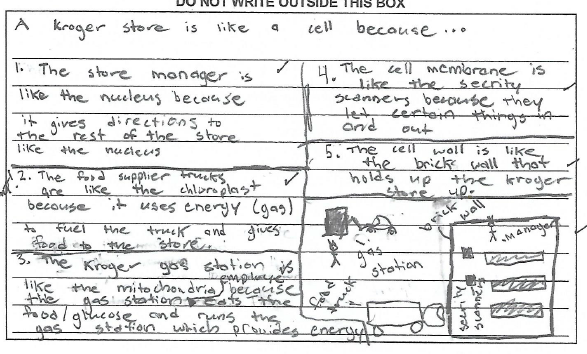 DO NOT WRITE OUTSIDE THIS BOX
A Kroger store is like a cell because...
1. The store manager is
like the nucleus because
it gives directions to
the rest of the store
like the nucleus
2. The food supplier trucks
are like the chloroplast
because it uses energy (gas)
to fuel the truck and gives
food to the store.
3. The Kroger gas station is
like the mitochondria because employee
the gas station eats the
food/glucose and runs the
gas station which provides energy
4. The cell membrane is
like the secrity
scanners because they
let certain things in
and out
5. The cell wall is like
the brick wall that
holds up the kroger
store up.
brick wall
manager
gas
station
food
truck
security
scanners